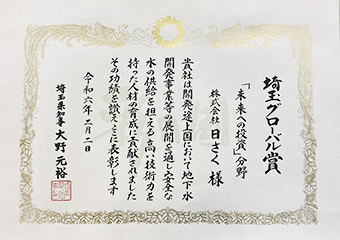 埼玉グローバル賞
「未来への投資」分野
株式会社 日さく 様
貴社は開発途上国において地下水
開発事業等の展開を通し安全な
水の供給を担える高い技術力を
持った人材の育成に貢献されました
その功績を讃えここに表彰します
令和六年二月二日
埼玉県知事 大野元裕